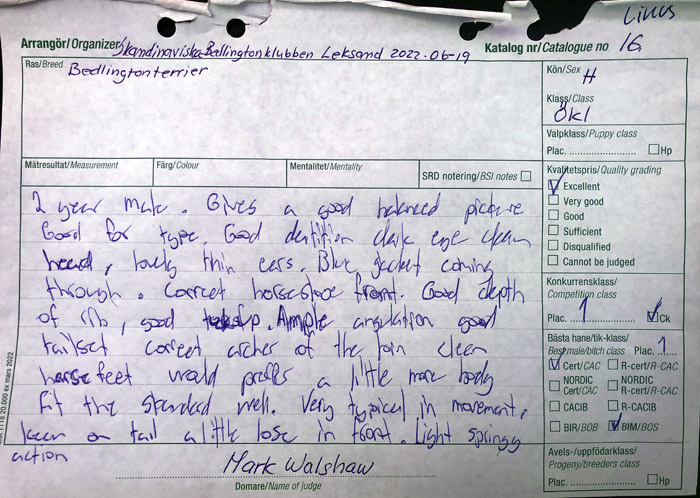 Linus
Arrangör/Organizer Skandinaviska Bellingtonklubben Leksand 2022-06-19
Katalog nr/Catalogue no 16
Ras/Breed Bedlingtonterrier
Kön/Sex H
Klass/Class Ökl
Valpklass/Puppy class
Plac. Hp
Mätresultat/Measurement
Färg/Colour
Mentalitet/Mentality
SRD notering/BSI notes
Kvalitetspris/Quality grading
Excellent
Very good
Good
Sufficient
Disqualified
Cannot be judged
Konkurrensklass/
Competition class
Plac. 1 Ck
Bästa hane/tik-klass/
Best male/bitch class Plac. 1
Cert/CAC R-cert/R-CAC
NORDIC Cert/CAC NORDIC R-cert/R-CAC
CACIB R-CACIB
BIR/BOB BIM/BOS
Avels-/uppfödarklass/
Progeny/breeders class
Plac. Hp
2 year male. Gives a good balanced picture
Good for type. Good dentition dark eye clean
head, lovely thin ears. Blue jacket coming
through. Correct horseshoe front. Good depth
of rib, good tuckup. Ample angulation good
tailset correct arches of the loin clean
feet would prefer a little more body
Fit the standard well. Very typical in movement,
on tail a little lose in front. Light springy
action
Mark Walshaw
Domare/Name of judge
1118 20.000 ex mars 2022